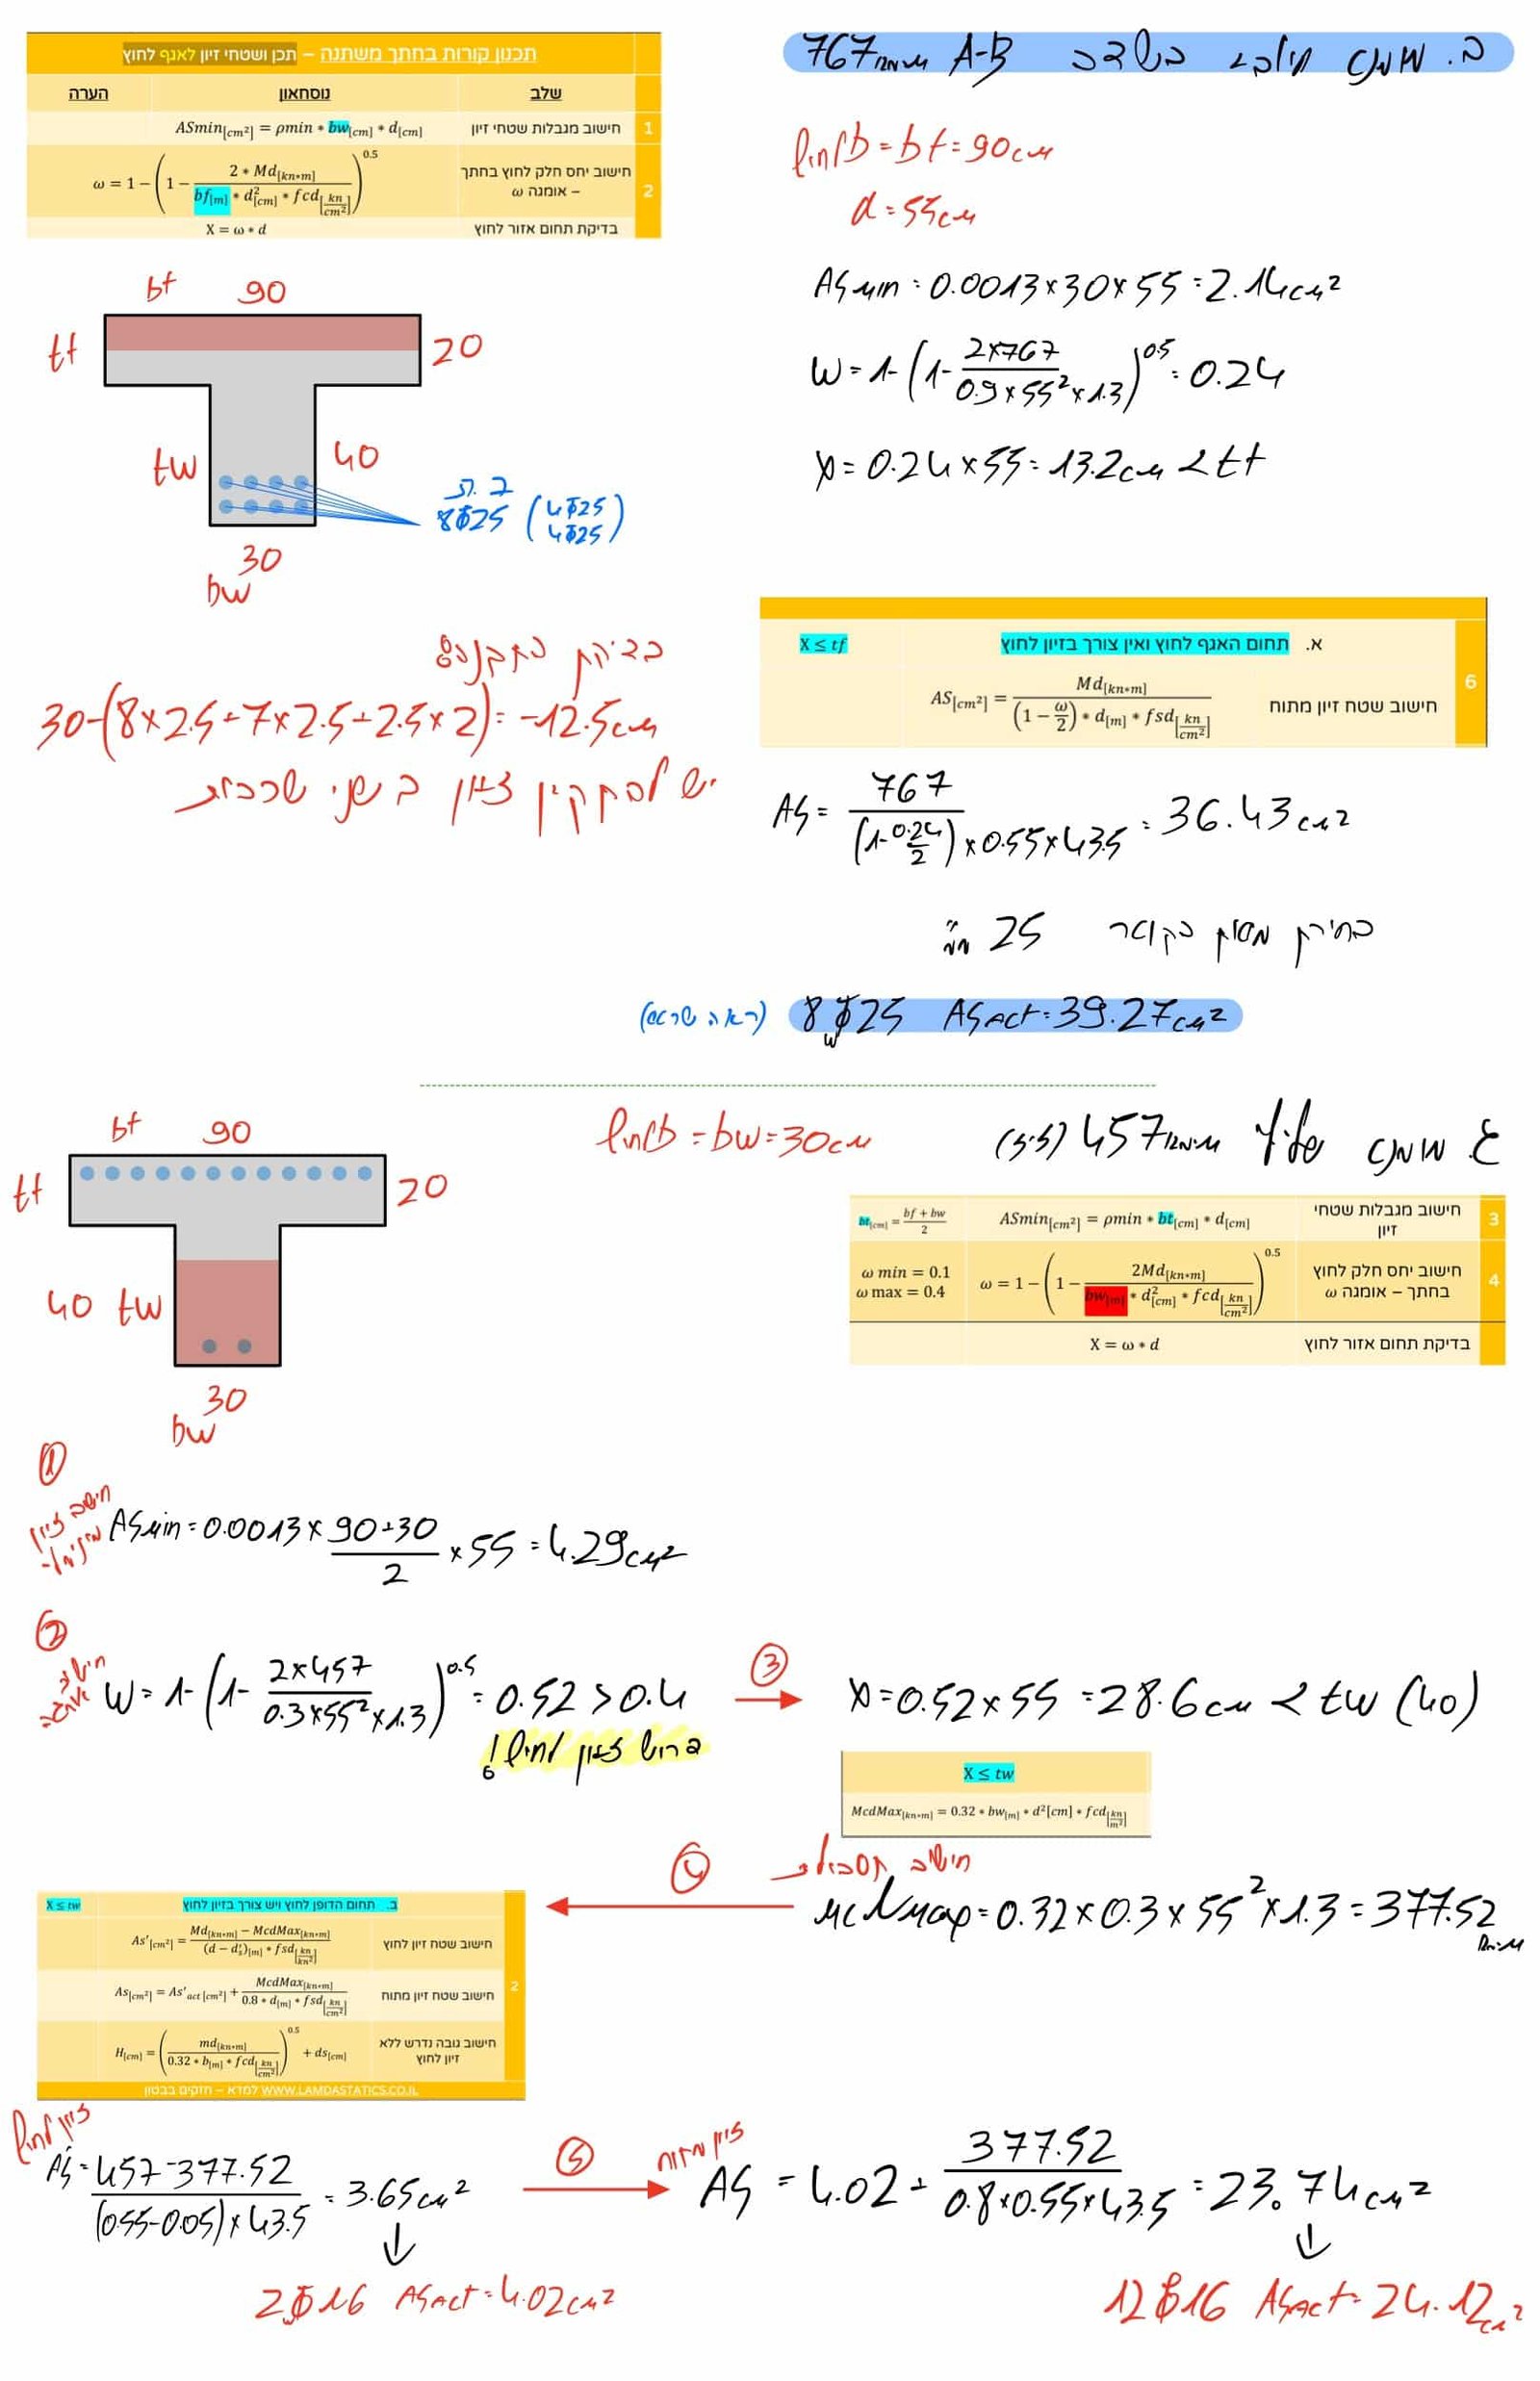 תכנון קורות בחתך משתנה – תכן ושטחי זיון לאגף לחוץ
שלב נוסחאון הערה
1 חישוב מגבלות שטחי זיון ASmin[cm²] = ρmin * bw[cm] * d[cm]
2 חישוב יחס חלק לחוץ בחתך – אומגה ω ω = 1 − (1 − 2 * Md[kn*m] / (bf[m] * d²[cm] * fcd[kn/cm²]))^0.5
בדיקת תחום אזור לחוץ X = ω * d
ב. מומנט חיובי בשדה A-B 767 קנ"מ
לחוץ b = bf = 90cm
d = 55cm
ASmin = 0.0013×30×55 = 2.14cm²
ω = 1-(1- 2×767 / (0.9×55²×1.3))^0.5 = 0.24
X = 0.24×55 = 13.2cm < tf
bf 90
tf 20
tw 40
8Φ25 (4Φ25
4Φ25)
30
bw
בדיקת התכנסות
30-(8×2.5+7×2.5+2.5×2) = -12.5cm
יש להתקין זיון ב שני שורות
6 א. תחום האגף לחוץ ואין צורך בזיון לחוץ X ≤ tf
חישוב שטח זיון מתוח AS[cm²] = Md[kn*m] / ((1 − ω/2) * d[m] * fsd[kn/cm²])
AS = 767 / ((1-0.24/2)×0.55×43.5) = 36.43cm²
בחירת מוטון בקוטר 25 מ"מ
8Φ25 ASact = 39.27cm² (ראה שרטוט)
ג. מומנט שלילי 457 קנ"מ
לחוץ b = bw = 30cm
bf 90
tf 20
40 tw
30
bw
3 חישוב מגבלות שטחי זיון ASmin[cm²] = ρmin * bt[cm] * d[cm] bt[cm] = (bf + bw) / 2
4 חישוב יחס חלק לחוץ בחתך – אומגה ω ω = 1 − (1 − 2Md[kn*m] / (bw[m] * d²[cm] * fcd[kn/cm²]))^0.5 ω min = 0.1
ω max = 0.4
בדיקת תחום אזור לחוץ X = ω * d
1
חישוב זיון מינימלי
ASmin = 0.0013× (90+30)/2 ×55 = 4.29cm²
2
חישוב אומגה
ω = 1-(1- 2×457 / (0.3×55²×1.3))^0.5 = 0.52 > 0.4
דרוש זיון לחוץ!
3
X = 0.52×55 = 28.6cm < tw (40)
X ≤ tw
McdMax[kn*m] = 0.32 * bw[m] * d²[cm] * fcd[kn/m²]
4
חישוב תסבולת
Mcdmax = 0.32×0.3×55²×1.3 = 377.52 קנ"מ
2 ב. תחום הדופן לחוץ ויש צורך בזיון לחוץ X ≤ tw
חישוב שטח זיון לחוץ As'[cm²] = (Md[kn*m] − McdMax[kn*m]) / ((d − d's)[m] * fsd[kn/kn²])
חישוב שטח זיון מתוח As[cm²] = As'act[cm²] + McdMax[kn*m] / (0.8 * d[m] * fsd[kn/cm²])
חישוב גובה נדרש ללא זיון לחוץ H[cm] = (md[kn*m] / (0.32 * b[m] * fcd[kn/cm²]))^0.5 + ds[cm]
למדא – חזקים בבטון WWW.LAMDASTATICS.CO.IL
זיון לחוץ
AS' = (457-377.52) / ((0.55-0.05)×43.5) = 3.65cm²
2Φ16 ASact = 4.02cm²
5
זיון מתוח
AS = 4.02 + 377.52 / (0.8×0.55×43.5) = 23.74cm²
12Φ16 ASact = 24.12cm²